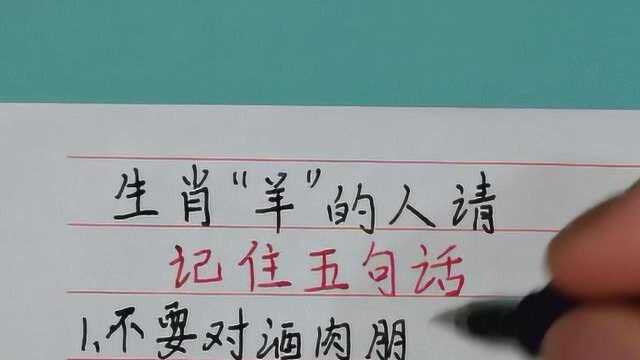 生肖“羊”的人请
记住五句话
1、不要对酒肉朋